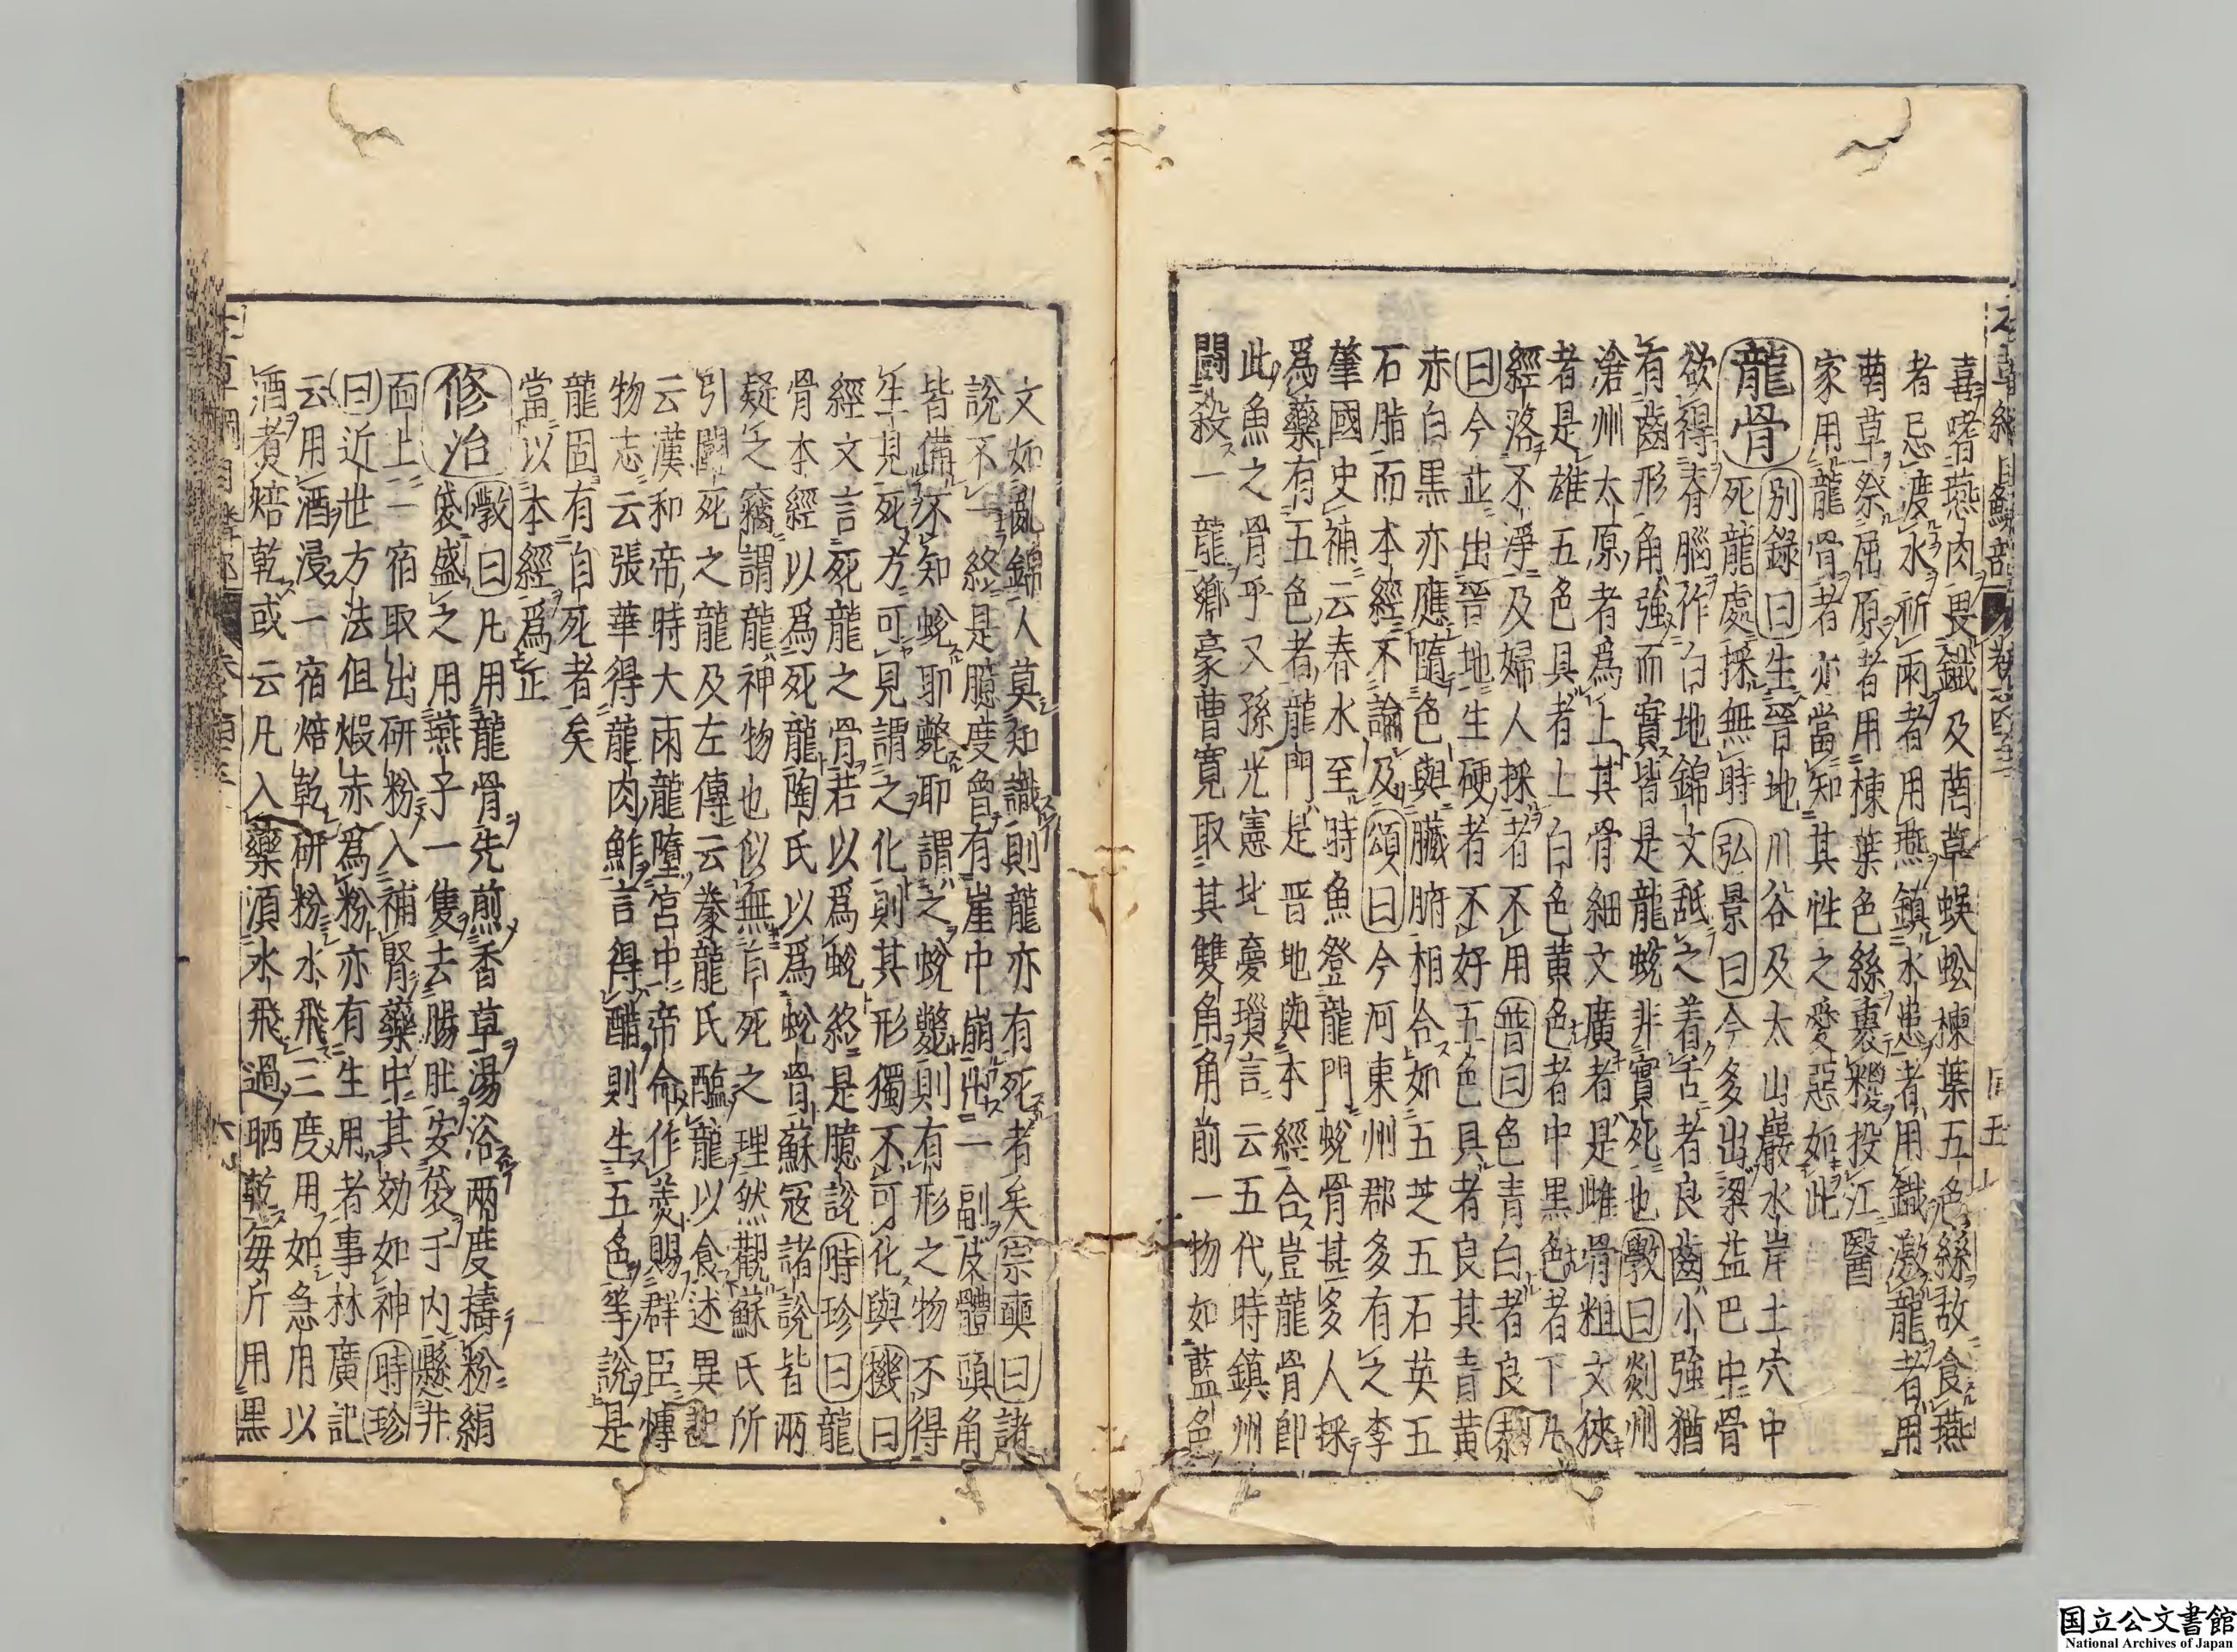 喜嗜燕肉畏鐵及䒽草蜈蚣楝葉五色絲故食燕
者忌渡水祈雨者用燕鎮水患者用鐵激龍者用
䒽草祭屈原者用楝葉色絲裹糉投江醫
家用龍骨者亦當知其性之愛惡如此
龍骨 別録曰生晉地川谷及太山巖水岸土穴中
死龍處採無時弘景曰今多出梁益巴中骨
欲得脊腦作白地錦文舐之着舌者良齒小強猶
有齒形角強而實皆是龍蛻非實死也斆曰剡州
滄州太原者爲上其骨細文廣者是雌骨粗文狹
者是雄五色具者上白色黄色者中黒色者下凢
經洛不淨及婦人採者不用普曰色青白者良恭
曰今並出晉地生硬者不好五色具者良其青黄
赤白黒亦應隨色與臟腑相合如五芝五石英五
石脂而本經不論及頌曰今河東州郡多有之李
肇國史補云春水至時魚登龍門蛻骨甚多人採
爲藥有五色者龍門是晋地與本經合豈龍骨卽
此魚之骨乎又孫光憲北夢瑣言云五代時鎮州
鬪殺一龍鄉豪曹寛取其雙角角前一物如藍色
文如亂錦人莫知識則龍亦有死者矣宗奭曰諸
說不一終是臆度曾有崖中崩出一副皮體頭角
皆備不知蛻耶斃耶謂之蛻斃則有形之物不得
生見死方可見謂之化則其形獨不可化與機曰
經文言死龍之骨若以爲蛻終是臆說時珍曰龍
骨本經以爲死龍陶氏以爲蛻骨蘇寇諸說皆兩
疑之竊謂龍神物也似無自死之理然觀蘇氏所
引鬪死之龍及左傳云豢龍氏醢龍以食述異記
云漢和帝時大雨龍墮宮中帝命作羹賜群臣博
物志云張華得龍肉鮓言得醋則生五色等說是
龍固有自死者矣
當以本經爲正
修治 斆曰凡用龍骨先煎香草湯浴兩度擣粉絹
袋盛之用燕子一隻去腸肚安袋于内懸井
面上一宿取出研粉入補腎藥中其効如神時珍
曰近世方法但煆赤爲粉亦有生用者事林廣記
云用酒浸一宿焙乾研粉水飛三度用如急用以
酒煑焙乾或云凡入藥須水飛過晒乾毎斤用黒
国立公文書館
National Archives of Japan